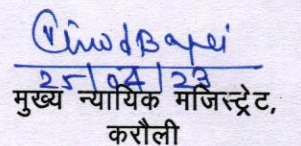 25/04/23
मुख्य न्यायिक मजिस्ट्रेट,
करौली